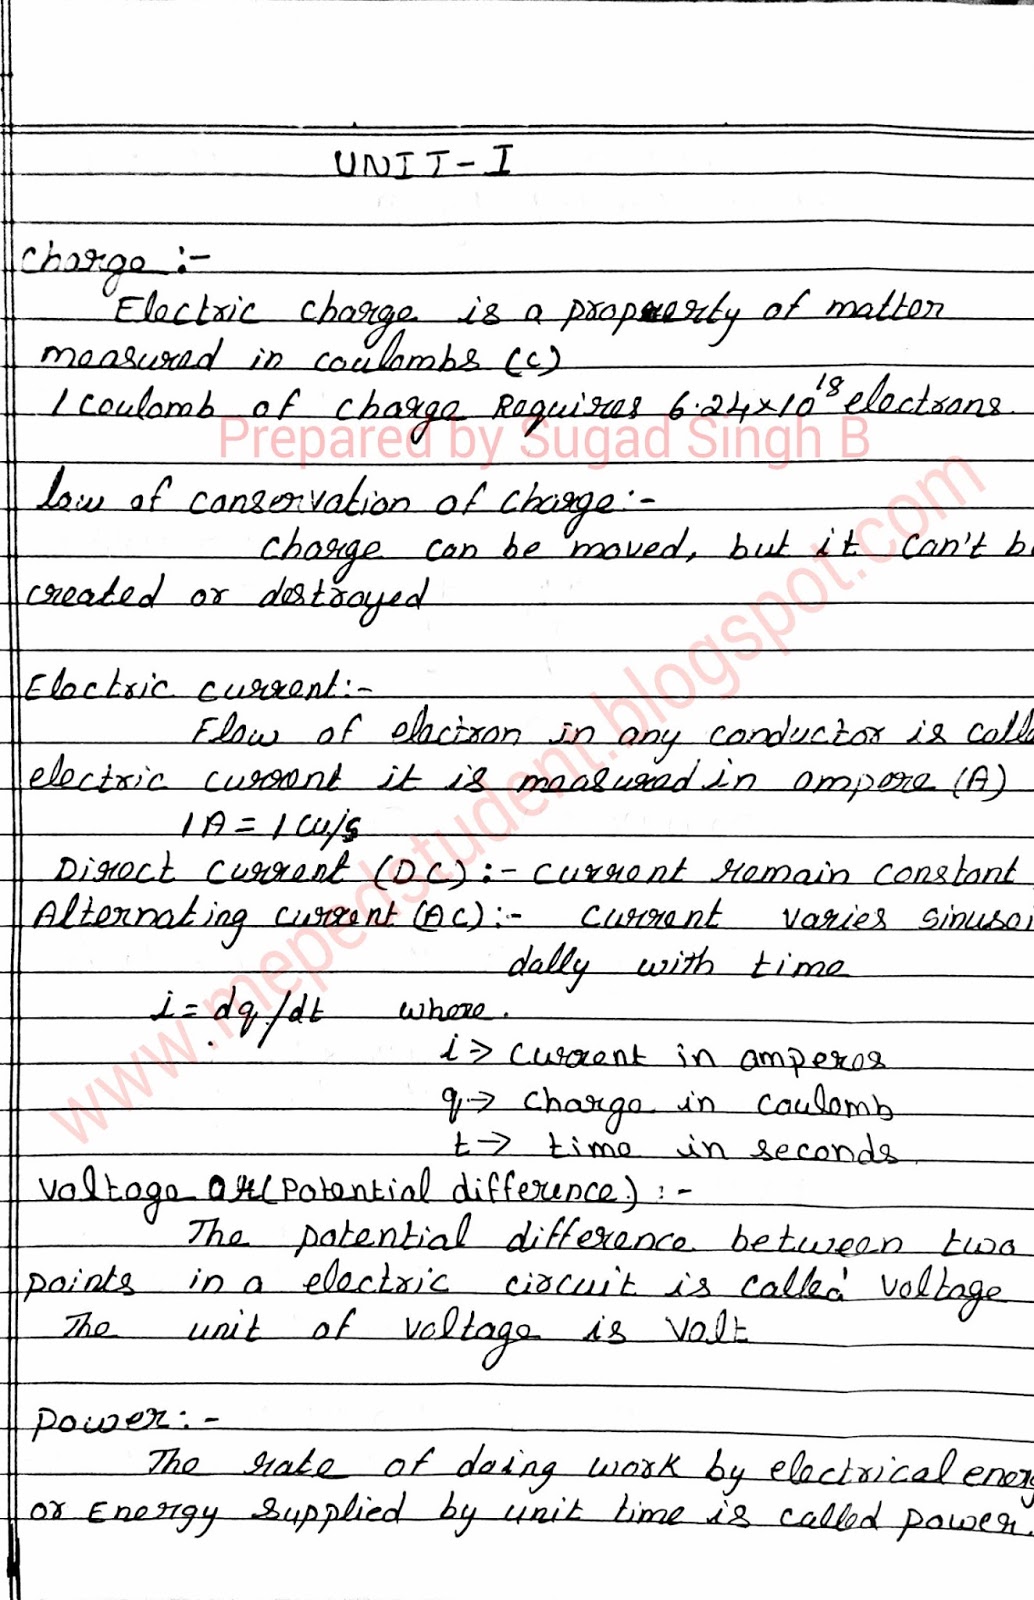 UNIT-I
Charge :-
Electric charge is a property of matter
measured in coulombs (C)
1 Coulomb of charge Requires 6.24x10^18 electrons.
Prepared by Sugad Singh B
law of conservation of charge:-
charge can be moved, but it can't b
created or destroyed
Electric current:-
Flow of electron in any conductor is calle
electric current it is measured in ampere (A)
1A = 1
Direct current (DC) :- current remain constant
Alternating current (AC):- current varies sinusoi
dally with time
i = dq/dt where.
i-> current in amperes
q-> charge in coulomb
t-> time in seconds
Voltage OR (Potential difference) :-
The potential difference between two
points in a electric circuit is called voltage
The unit of voltage is Volt
Power:-
The rate of doing work by electrical energ
or Energy supplied by unit time is called power.
www.mepedstudent.blogspot.com